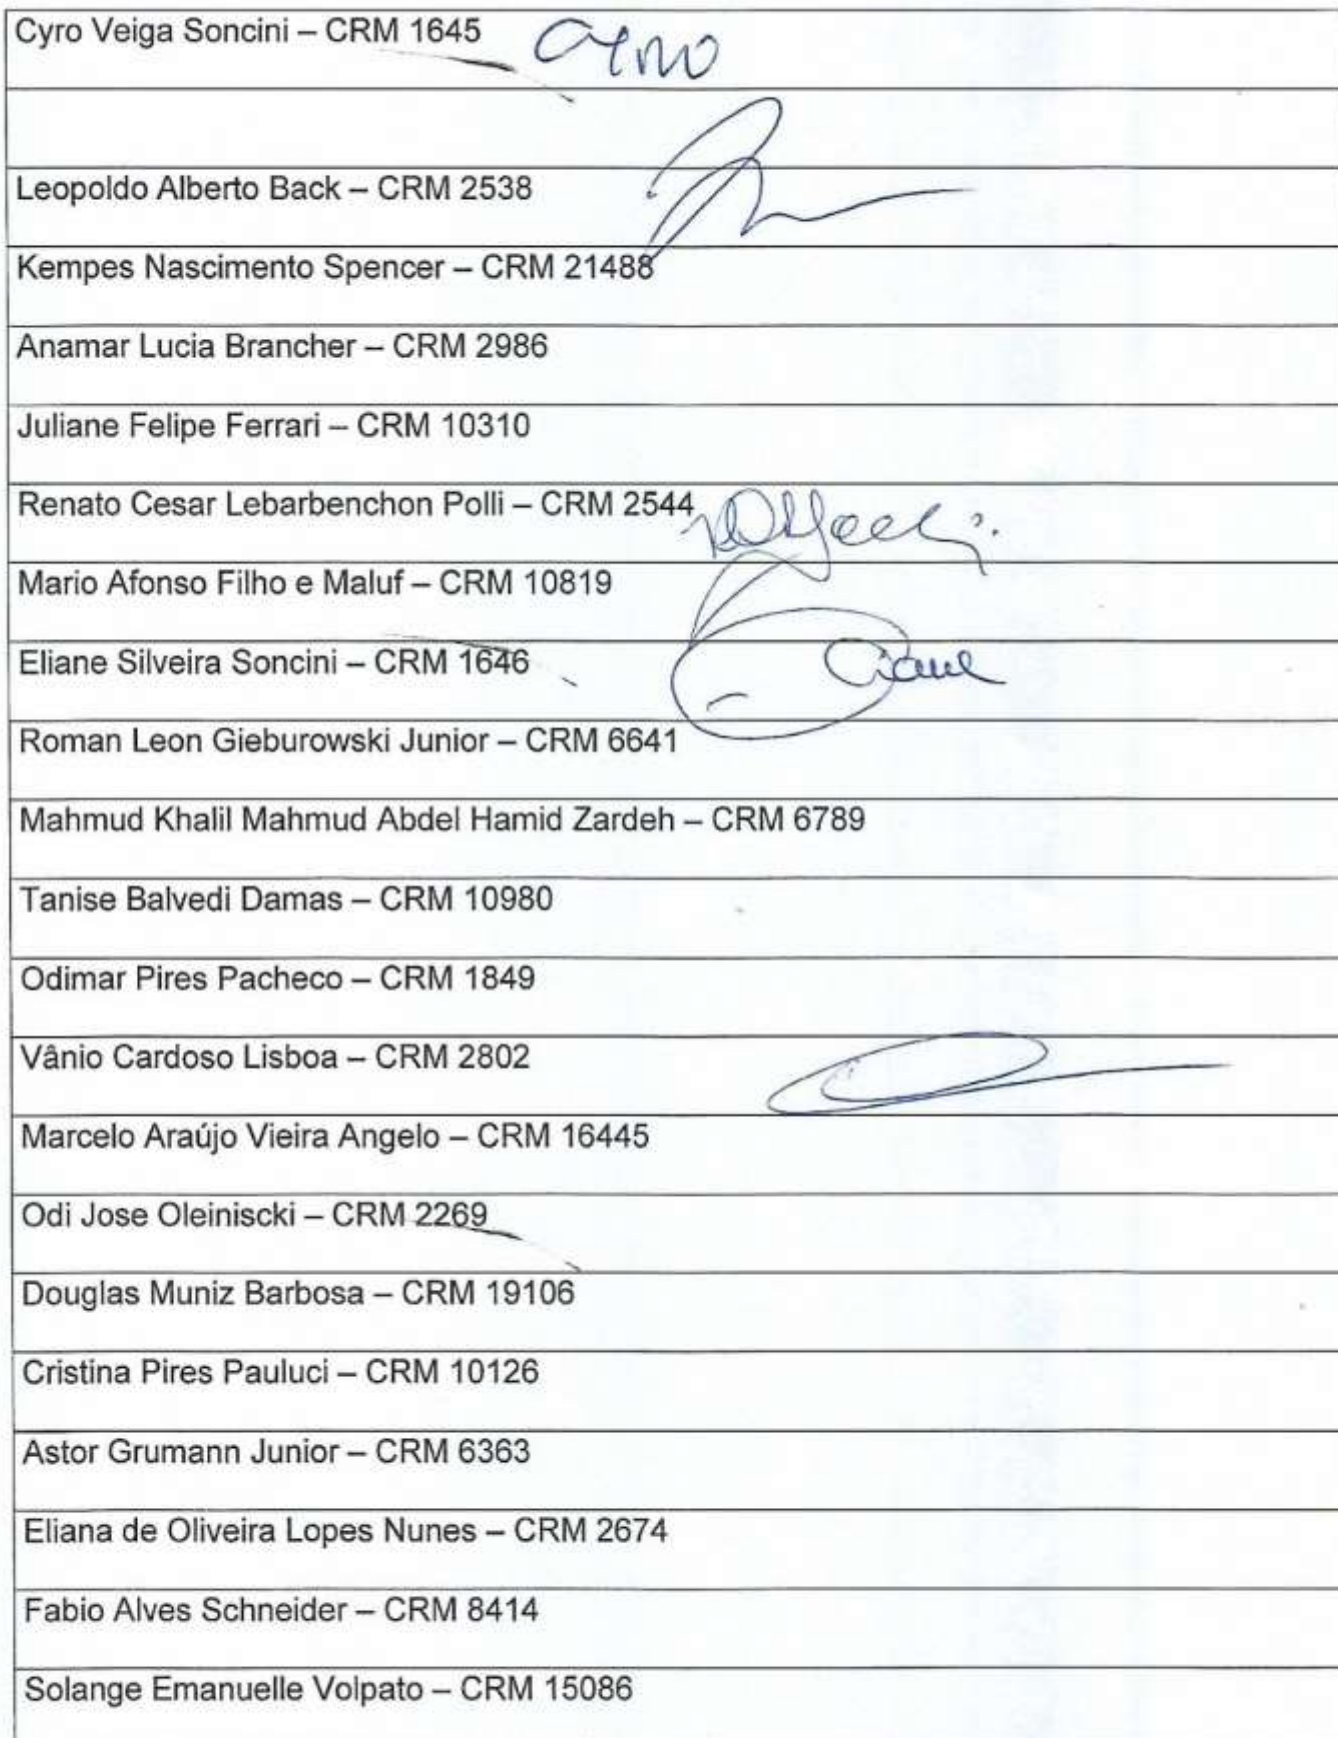 Cyro Veiga Soncini – CRM 1645 Cyro
Leopoldo Alberto Back – CRM 2538
Kempes Nascimento Spencer – CRM 21488
Anamar Lucia Brancher – CRM 2986
Juliane Felipe Ferrari – CRM 10310
Renato Cesar Lebarbenchon Polli – CRM 2544
Mario Afonso Filho e Maluf – CRM 10819
Eliane Silveira Soncini – CRM 1646
Roman Leon Gieburowski Junior – CRM 6641
Mahmud Khalil Mahmud Abdel Hamid Zardeh – CRM 6789
Tanise Balvedi Damas – CRM 10980
Odimar Pires Pacheco – CRM 1849
Vânio Cardoso Lisboa – CRM 2802
Marcelo Araújo Vieira Angelo – CRM 16445
Odi Jose Oleiniscki – CRM 2269
Douglas Muniz Barbosa – CRM 19106
Cristina Pires Pauluci – CRM 10126
Astor Grumann Junior – CRM 6363
Eliana de Oliveira Lopes Nunes – CRM 2674
Fabio Alves Schneider – CRM 8414
Solange Emanuelle Volpato – CRM 15086